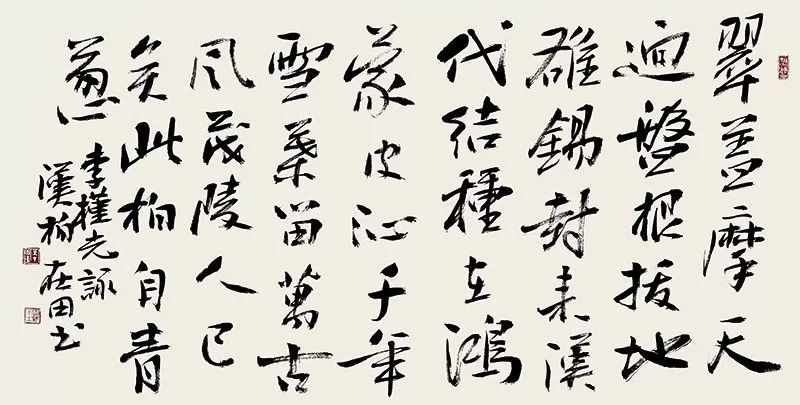 翠盖摩天
迥盤根拔地
雄錫封来漢
代結種在鴻
蒙皮沁千年
雪葉留萬古
风茂陵人已
矣此柏自青
葱
李先詠
漢柏在田书